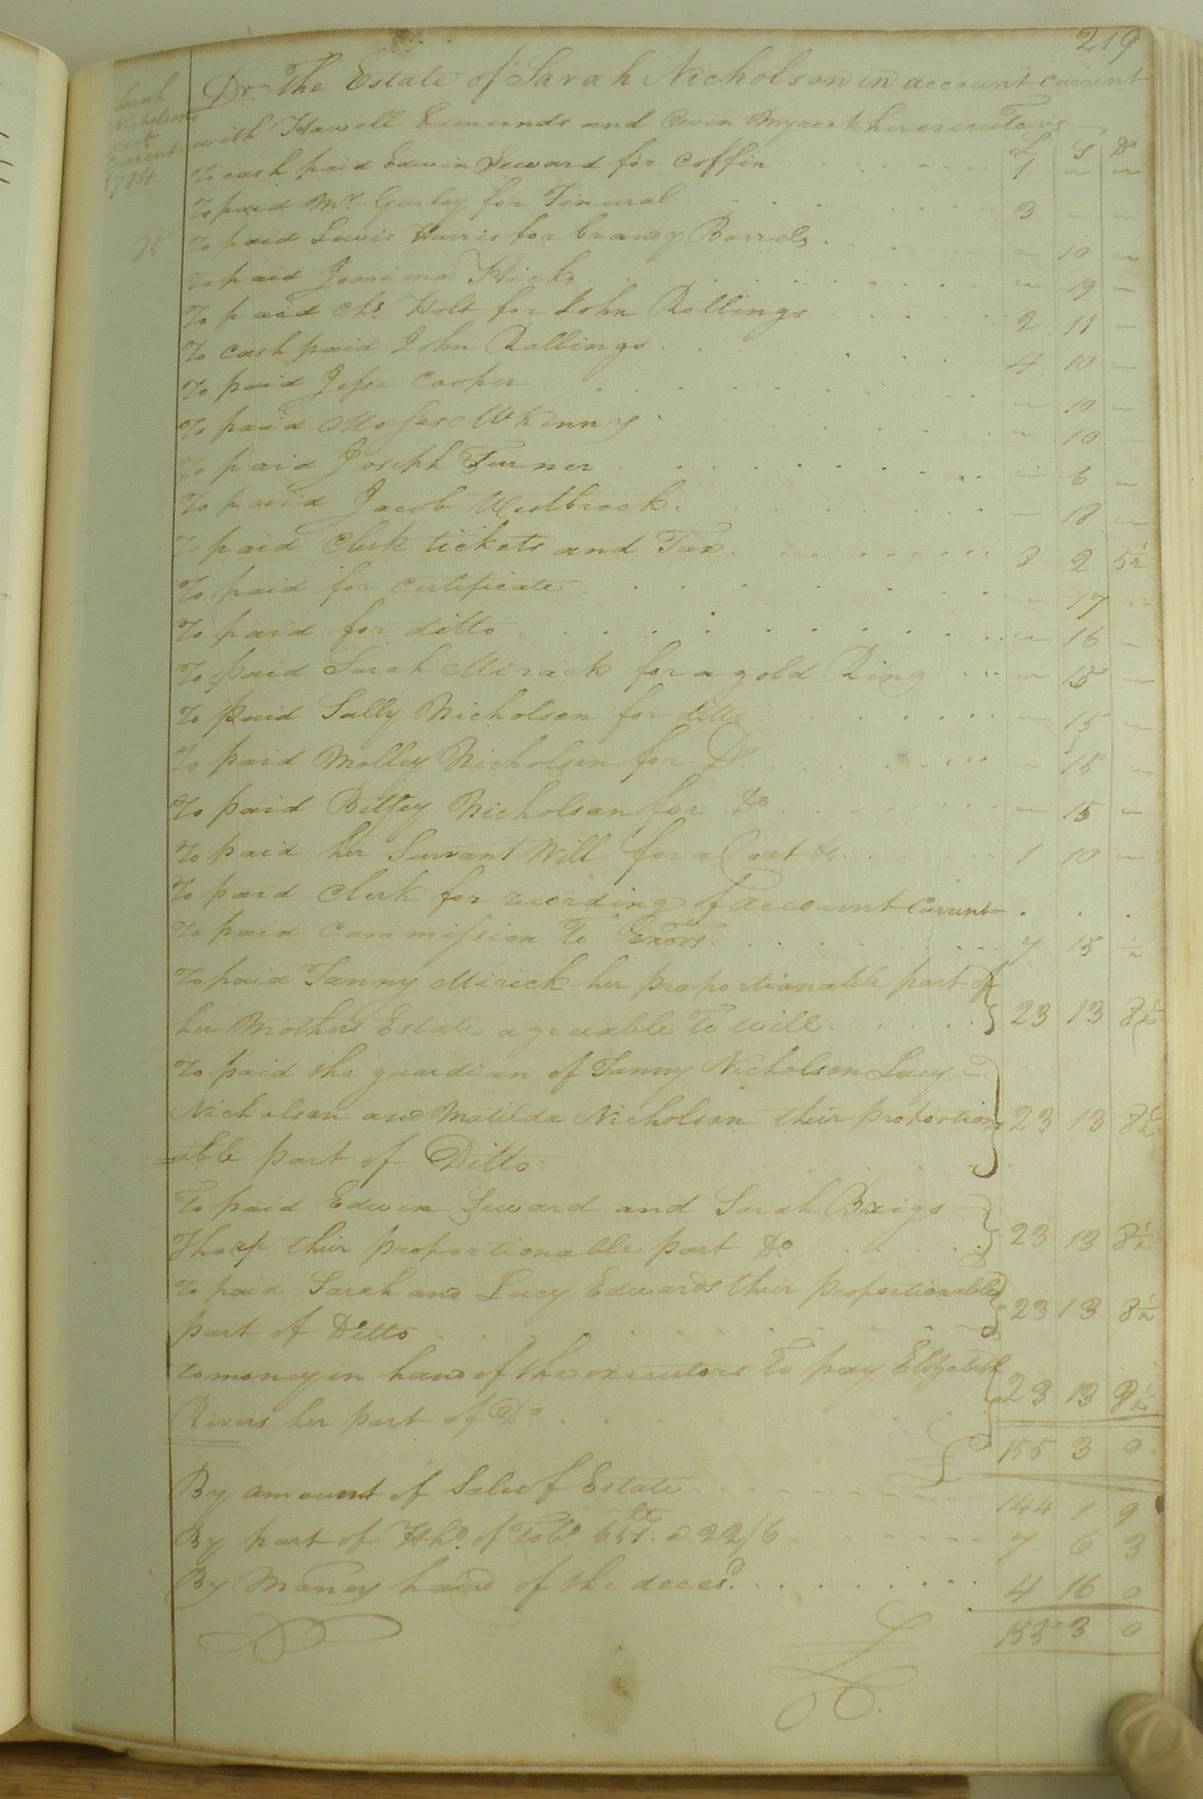 219
Sarah
Nicholson's
acct
Current
1784
Dr The Estate of Sarah Nicholson in account current
with Howell Edmunds and Owen Myrick her executors
£ S D
To cash paid Edwin Seward for Coffin 1 - -
To paid Mr. Gurley for Funeral 3 - -
25
To paid Lewis Harris for brandy Barrels - 10 -
To paid Jemima Hicks - 19 -
To paid Chs. Holt for John Rollings 2 11 -
To cash paid John Rallings 4 10 -
To paid Jesse Cooper - 10 -
To paid Moses McKenny - 10 -
To paid Joseph Turner - 6 -
To paid Jacob Westbrook - 18 -
To paid Clerk tickets and Tax 8 2 5½
To paid for certificate - 17 -
To paid for ditto - 16 -
To paid Sarah Mirack for a gold Ring - 15 -
To paid Sally Nicholson for ditto - 15 -
To paid Molley Nicholson for Do. - 15 -
To paid Betsey Nicholson for Do - 15 -
To paid her Servant Will for a Coat &c. 1 10 -
To paid Clerk for recording of account Current . . .
To paid Commission to Exors. 7 15 ½
To paid Fanny Mirick her proportionable part of
her Mothers Estate agreeable to will. 23 13 8½
To paid the guardian of Fanny Nicholson Lucy
Nicholson and Matilda Nicholson their proportion 23 13 8½
=able part of Ditto
To paid Edwin Seward and Sarah Brigs
Tharp their proportionable part Do 23 13 8½
To paid Sarah and Lucy Edwards their proportionable
part of Ditto 23 13 8½
to money in hand of the executors to pay Elizabeth
Rivers her part of Do 23 13 8½
£ 155 3 0
By amount of Sale of Estate 144 1 9
By part of Hhd. of Tobo. 651 lb. a 22/6 7 6 3
By Money hand of the decesd. 4 16 0
£ 155 3 0